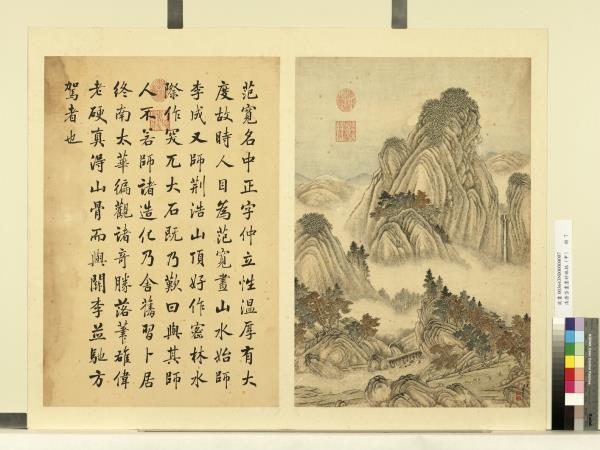 范寬名中正字仲立性溫厚有大
度故時人目為范寬畫山水始師
李成又師荆浩山頂好作密林水
際作突兀大石既乃歎曰與其師
人不若師諸造化乃舍舊習卜居
終南太華徧觀諸奇勝落筆雄偉
老硬真得山骨而與關李並馳方
駕者也